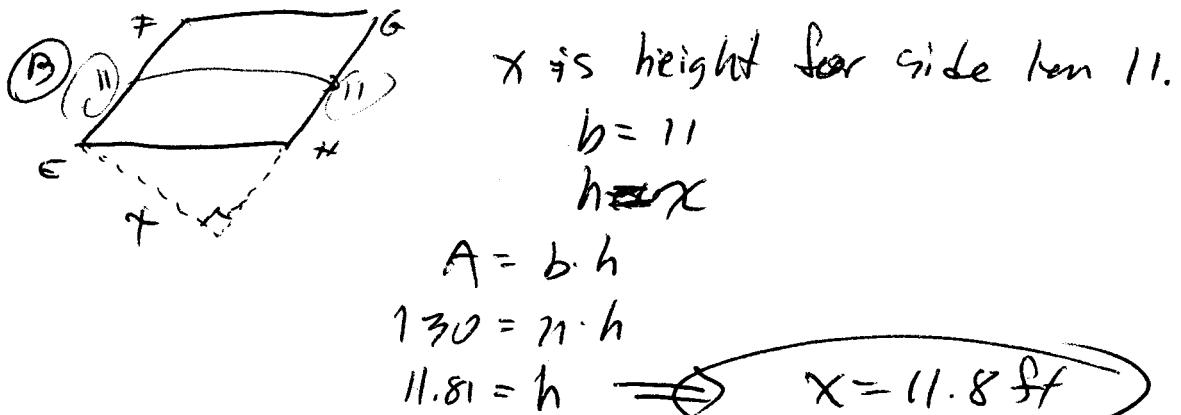 F
G
B
11
11
E
H
x
x is height for side len 11.
b = 11
h = x
A = b · h
130 = 11 · h
11.81 = h ⇒ x = 11.8 ft